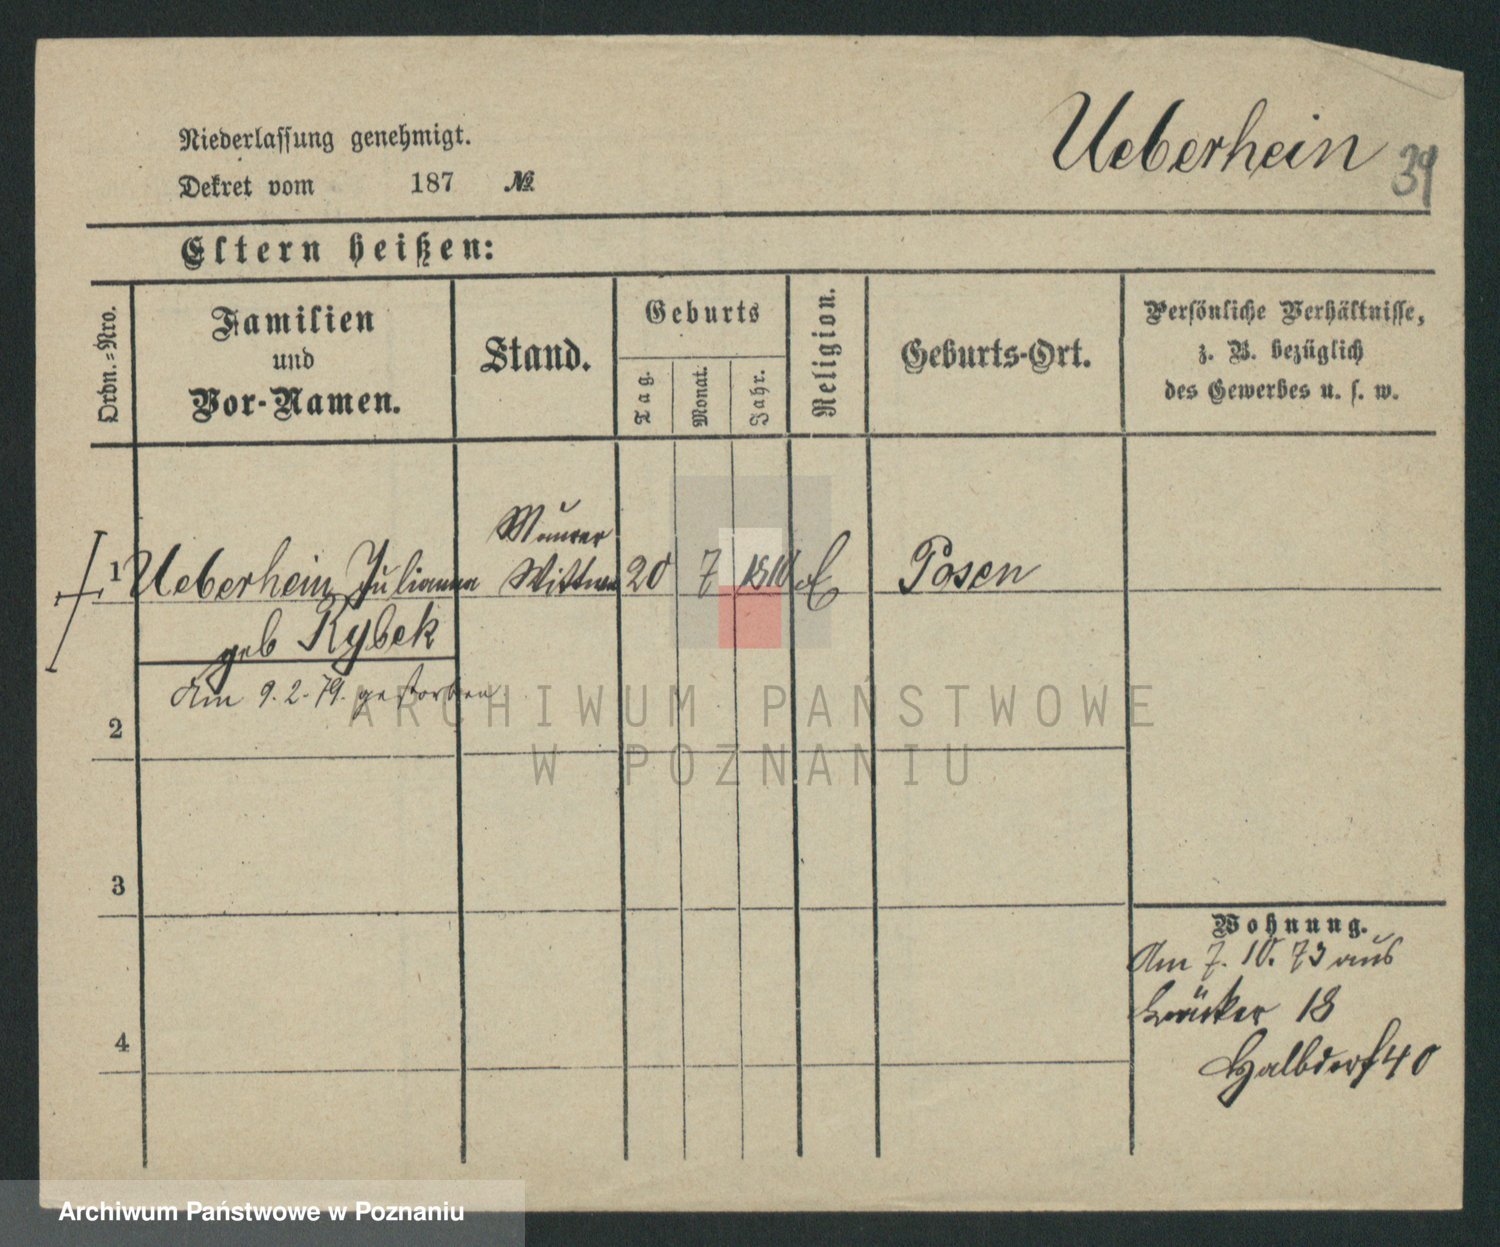 Ueberhein
39
Niederlassung genehmigt.
Dekret vom 187 №
Eltern heißen:
Ordn.=Nro.
Familien
und
Vor-Namen.
Stand.
Geburts
Tag.
Monat.
Jahr.
Religion.
Geburts-Ort.
Persönliche Verhältnisse,
z. B. bezüglich
des Gewerbes u. s. w.
Maurer
1 Ueberhein Julianna Wittwe 20 7 1810 Posen
geb Rybek
Am 9.2.79. gestorben
2
3
4
Wohnung.
Am 7. 10. 73 aus
18
Halbdorf 40
ARCHIWUM PAŃSTWOWE
W POZNANIU
Archiwum Państwowe w Poznaniu